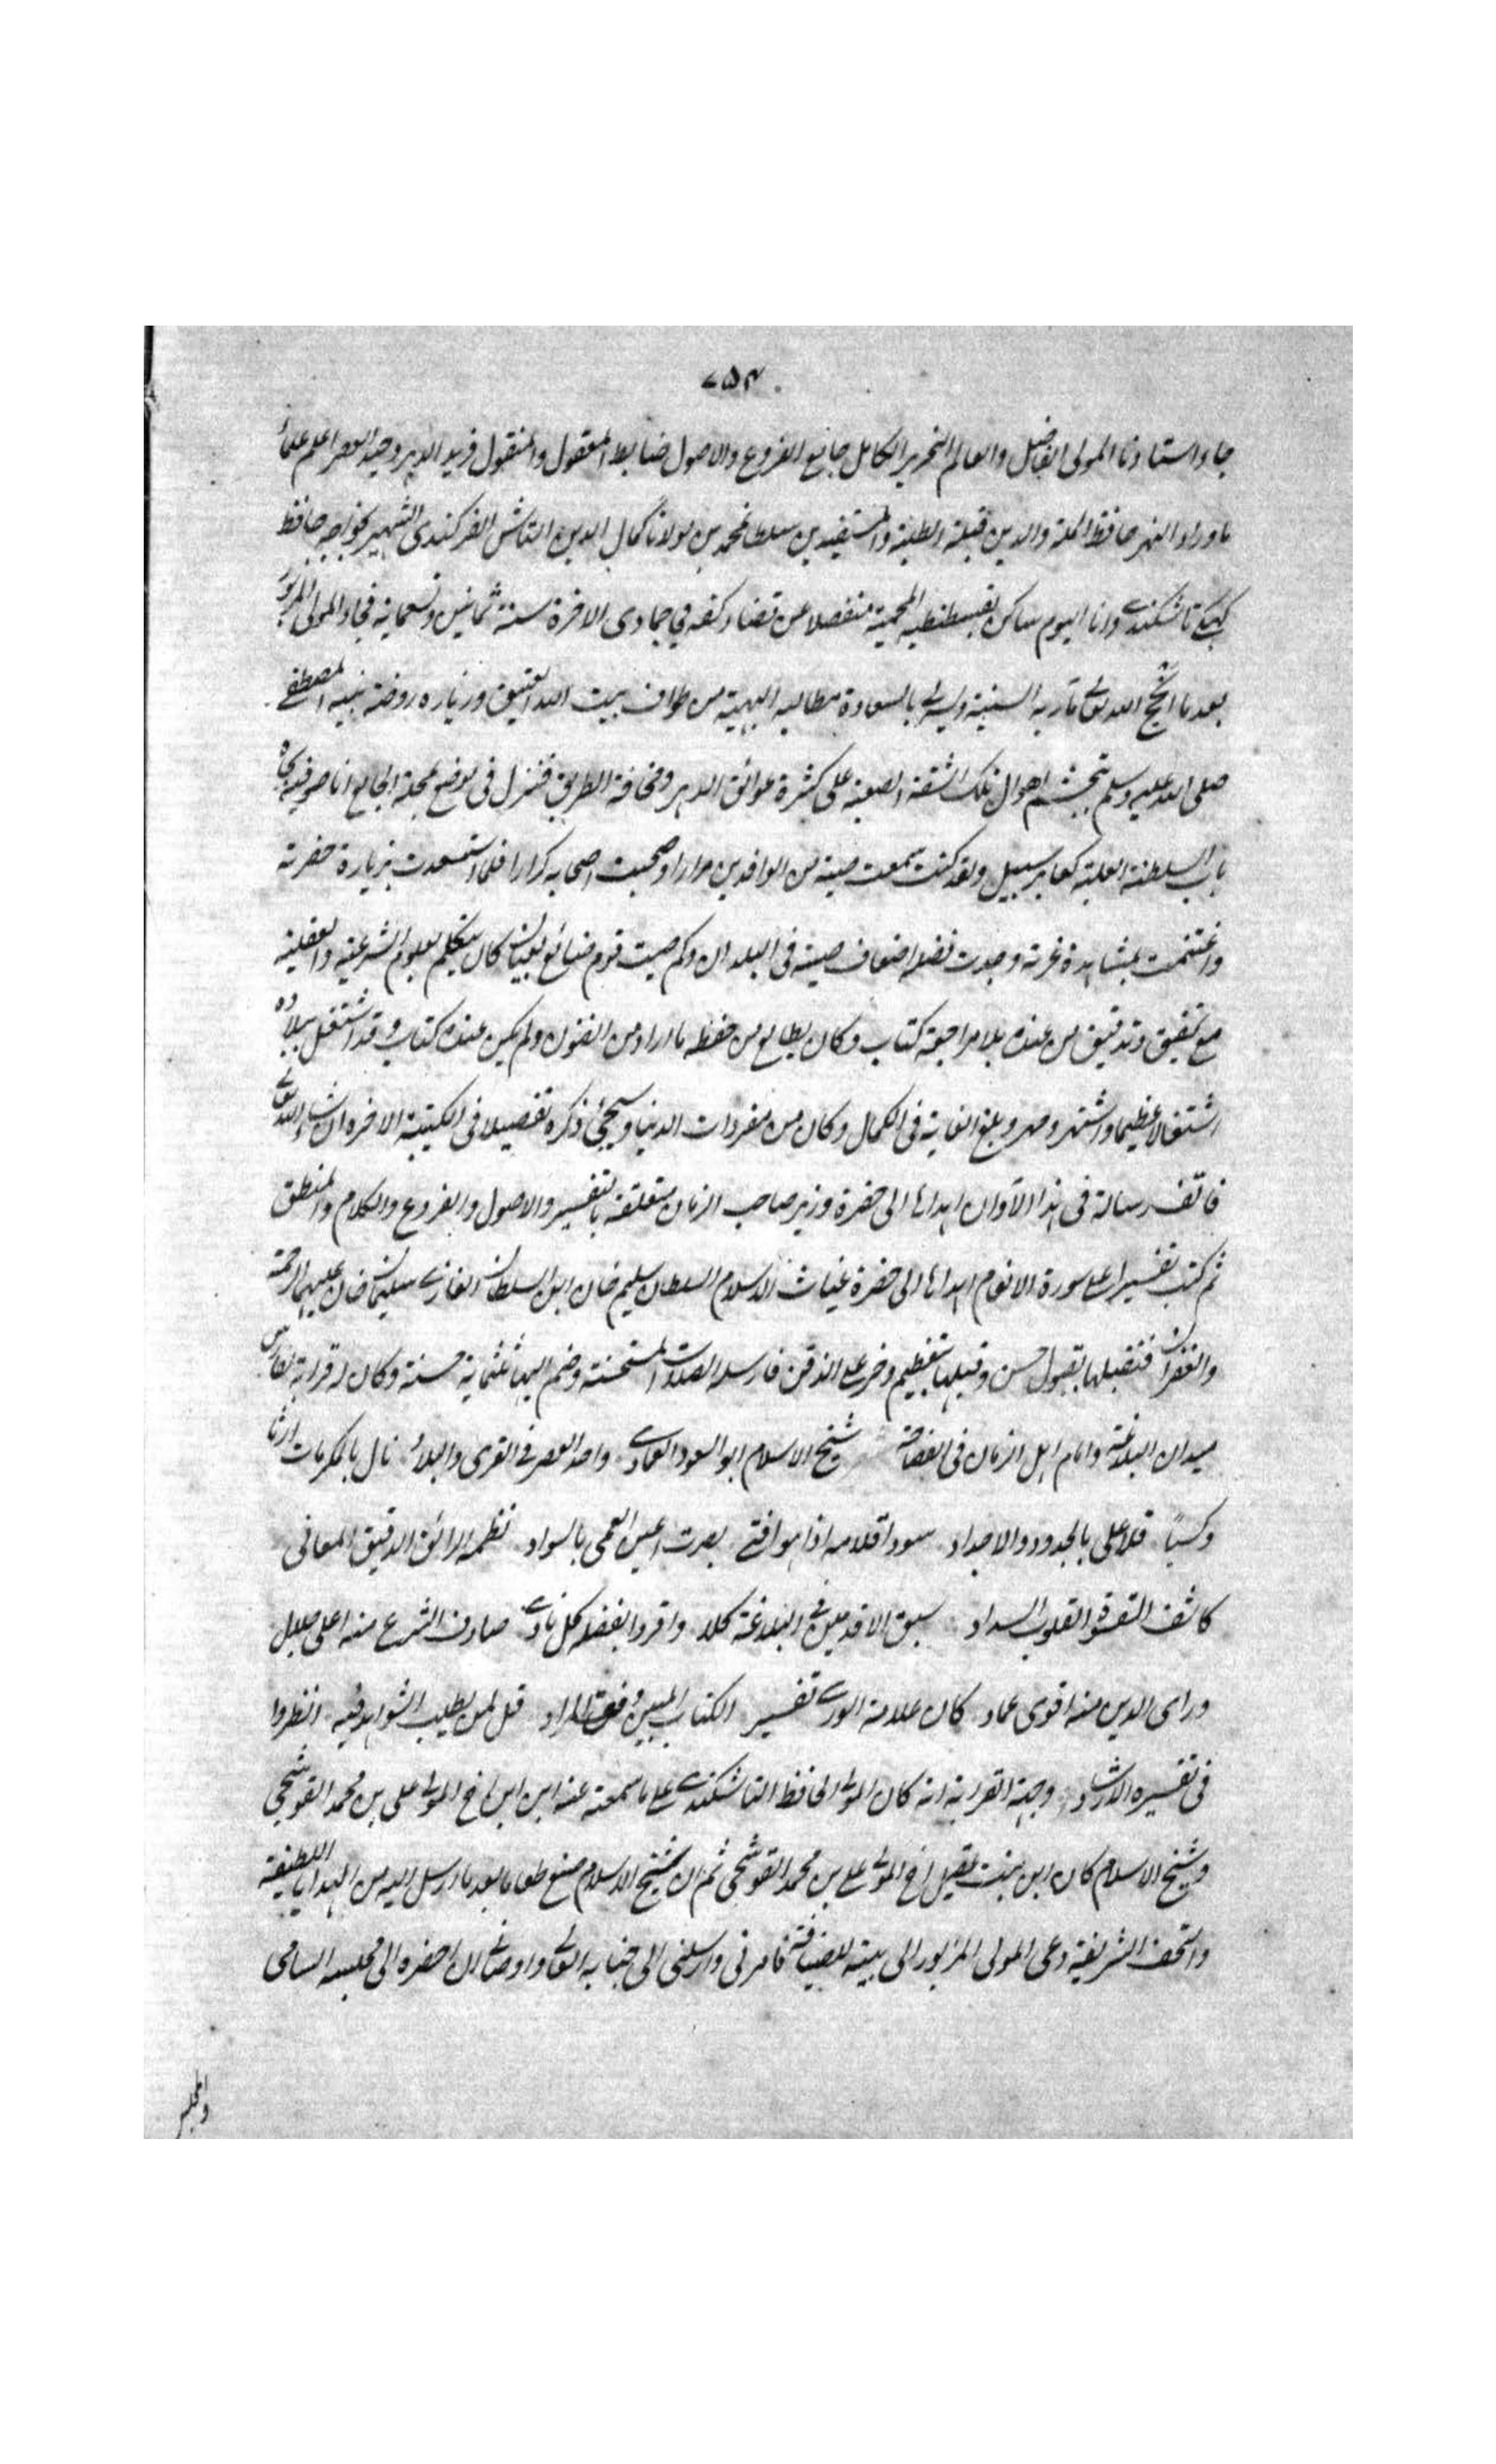 ٧٥٣
جاء استاذنا المولى الفاضل والعالم النحرير الكامل جامع الفروع والاصول ضابط المعقول والمنقول فريد الدهر وحيد العصر اعلم علماء
ماوراء النهر حافظ الملة والدين قبلة الطلبة والمستفيدين سلطان محمد بن مولانا كمال الدين التاشكندى الشهير بخواجه حافظ
تاشكندى وانا اليوم ساكن بقسطنطنيه المحمية منفصلا عن قضاء كفه في جمادى الاخرة سنة ثمانين وتسعمائة فجاء المولى المزبور
بعد ما انجح الله تعالى مآربه السنية ويسر له بالسعادة مطالبه البهية من طواف بيت الله العتيق وزيارة روضة نبيه المصطفى
صلى الله عليه وسلم بتجشم اهوال تلك الشقة الصعبة على كثرة عوائق الدهر ومخافة الطريق فنزل فى موضع بمحلة الجامع اياصوفيه
باب السلطنة العلية كعابر سبيل ولقد كنت سمعت صيته من الوافدين مرارا وصحبت اصحابه كرارا فلما استسعدت بزيارة حضرته
واغتنمت بمشاهدة غرته وجدت فضله اضعاف صيته فى البلدان وكم صيت قوم ضائع كان يتكلم بعلوم الشرعية والعقلية
مع تحقيق وتدقيق من عنده بلا مراجعة كتاب وكان يطالع من حفظه ما اراد من الفنون ولم يكن عنده كتاب وقد اشتغل ببلاده
اشتغالا عظيما واشتهر ومهر وبلغ الغاية فى الكمال وكان من مفردات الدنيا وسيجئ ذكره تفصيلا فى الكتيبة الاخرة ان شاء الله تعالى
فالف رسالة فى هذا الآوان اهداها الى حضرة وزير صاحب الزمان متعلقة بالتفسير والاصول والفروع والكلام والمنطق
ثم كتب تفسيرا على سورة الانعام اهداها الى حضرة غياث الاسلام السلطان سليم خان ابن السلطان الغازى سليمان خان عليهما الرحمة
والغفران فتقبلها بقبول حسن وقبلها بتعظيم وخر على الذقن فارسله الصلات المستحسنة وضم اليها ثلثماية حسنة وكان له قرابة لفارس
ميدان البلاغة وامام اهل الزمان فى الفصاحة شيخ الاسلام ابو السعود العمادى واحد العصر فى القرى والبلاد نال بالمكرمات ارثا
وكسبا قد علا بالجدود والاجداد سود اقلامه اذا هو افتى بصرت اعين العمى بالسواد نظمه الرائق الدقيق المعانى
سبق الاقدمين فى البلاغة كلا واقروا بفضله كل ناد صادف الشرع منه اعلى جليل
وراى الدين منه اقوى عماد كان علامة الورى تفسير الكتاب المبين وفق المراد قل لمن يطلب الشواهد فيه انظروا
فى تفسيره الارشاد وجهة القرابة انه كان المولى الحافظ التاشكندى على ما سمعته عنه ابن ابن اخ المولى على بن محمد القوشجى
وشيخ الاسلام كان ابن بنت عقيل اخ المولى على بن محمد القوشجى ثم ان شيخ الاسلام صنع طعاما بعد ما ارسل اليه من الهدايا اللطيفة
والتحف الشريفة دعى المولى المزبور الى بيته للضيافة فامرنى وارسلنى الى جنابه العالى واوصانى ان احضره الى مجلسه السامى
والمجلس